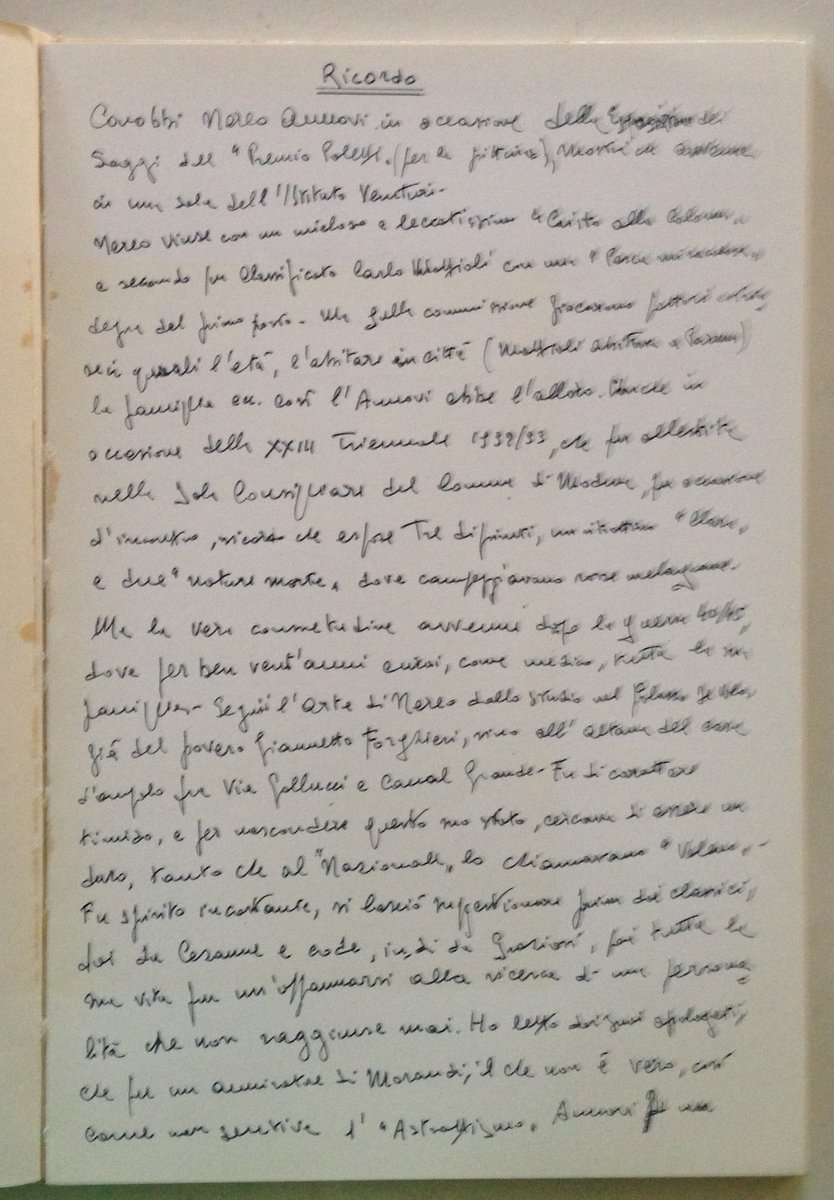 Ricordo
Conobbi Nereo Annovi in occasione della Esposizione dei
Saggi del "Premio Poletti" (per la pittura), mostra che
in una sala dell'Istituto Venturi.
Nereo vinse con un mieloso e leccatissimo "Cristo alla Colonna"
e secondo fu classificato Carlo Mattioli con una "Pesca miracolosa"
degna del primo posto. Ma sulla commissione giocarono fattori
quali l'età, l'abitare in città (Mattioli abitava a Parma)
la famiglia ecc. così l'Annovi ebbe l'alloro. Anche in
occasione della XXIII Triennale 1932/33, che fu allestita
nella Sala Consigliare del Comune di Modena, fu occasione
d'incontro, ricordo che espose tre dipinti, un
e due "nature morte" dove campeggiavano rosse melagrane.
Ma la vera consuetudine avvenne dopo la guerra 40/45,
dove per ben vent'anni curai, come medico, tutta la sua
famiglia. Seguii l'arte di Nereo dallo studio nel Palazzo
già del povero Giannetto Forghieri, sino all'altana del casa
d'angolo fra Via Gallucci e Canal Grande. Fu di carattere
timido, e per nascondere questo suo stato, cercava di essere un
duro, tanto che al "Nazionale" lo chiamavano
Fu spirito incostante, si lasciò suggestionare prima dai classici,
poi da Cezanne e indi da Graziosi, poi tutta la
sua vita fu un'affannarsi alla ricerca di una persona=
lità che non raggiunse mai. Ho letto dai suoi apologeti,
che fu un ammiratore di Morandi, il che non é vero, così
come non sentiva l'"Astrattismo" Annovi fu un